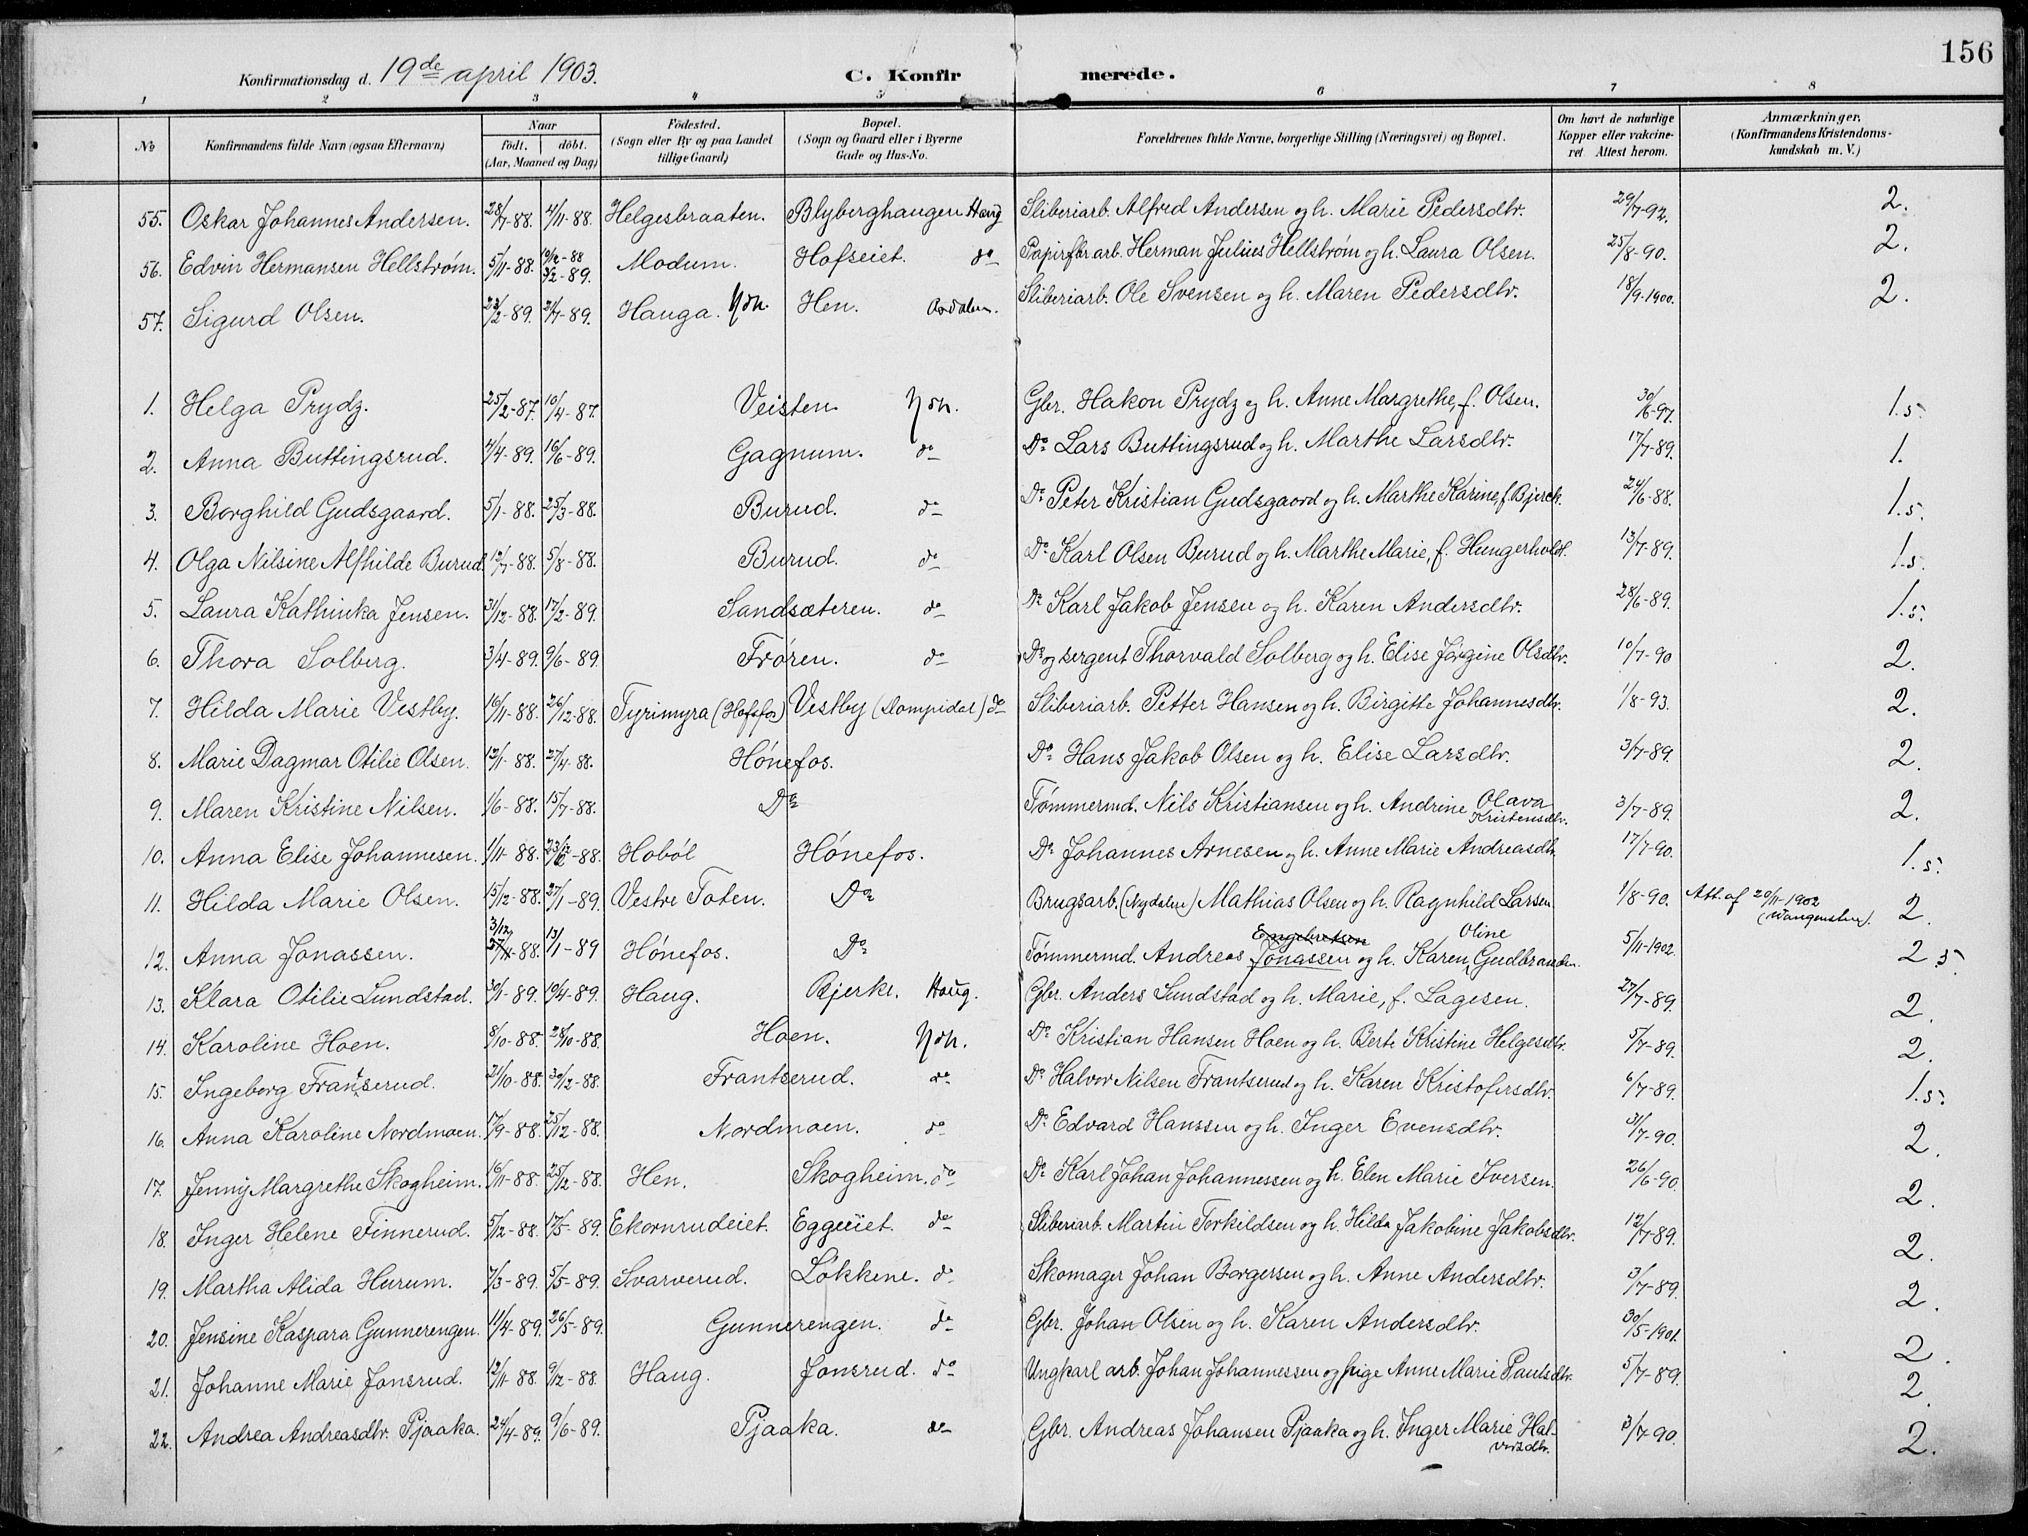 156
Konfirmationsdag d. 19de april 1903. C. Konfirmerede.
1 2 3 4 5 6 7 8
No
Konfirmandens fulde Navn (ogsaa Efternavn)
Naar
født. døbt.
(Aar, Maaned og Dag)
Fødested.
(Sogn eller By og paa Landet
tillige Gaard)
Bopæl.
(Sogn og Gaard eller i Byerne
Gade og Hus-No.
Forældrenes fulde Navne, borgerlige Stilling (Næringsvei) og Bopæl.
Om havt de naturlige
Kopper eller vakcine-
ret Attest herom.
Anmærkninger.
(Konfirmandens Kristendoms-
kundskab m. V.)
55. Oskar Johannes Andersen. 28/7-88. 4/11-88. Helgesbraaten. Blyberghaugen Haug Sliberiarb. Alfred Andersen og h. Marie Pedersdtr. 29/7-92. 2.
56. Edvin Hermansen Hellstrøm. 5/11-88. 3/2-89. Modum. Hofseiet. do Papirfbr arb. Herman Julius Hellstrøm og h. Laura Olsen. 25/8-90. 2.
57. Sigurd Olsen. 23/2-89. 21/7-89. Hauga. Ndh. Hen. Aadalen. Sliberiarb. Ole Svensen og h. Maren Pedersdtr. 18/9-1900. 2.
1. Helga Prydz. 25/2-87. 10/4-87. Veisten. Ndh. Gbr. Hakon Prydz og h. Anne Margrethe, f. Olsen. 30/6-97. 1.5.
2. Anna Buttingsrud. 4/4-89. 16/6-89. Gagnum. do Do Lars Buttingsrud og h. Marthe Larsdtr. 17/7-89. 1.
3. Borghild Gudsgaard. 5/1-88. 25/3-88. Burud. do Do Peter Kristian Gudsgaard og h. Marthe Karine, f. Bjerck. 24/6-88. 1.5.
4. Olga Nilsine Alfhilde Burud. 12/7-88. 5/8-88. Burud. do Do Karl Olsen Burud og h. Marthe Marie, f. Hungerholdt. 13/7-89. 1.5.
5. Laura Kathinka Jensen. 31/12-88. 17/2-89. Sandsæteren. do Do Karl Jakob Jensen og h. Karen Andersdtr. 28/6-89. 1.5.
6. Thora Solberg. 3/4-89. 9/6-89. Frøren. do Do og sergent Thorvald Solberg og h. Elise Jørgine Olsdtr. 10/7-90 2.
7. Hilda Marie Vestby. 16/11-88. 26/12-88. Tyrimyra (Hofsfos) Vestby (Dompidal) do Sliberiarb. Petter Hansen og h. Birgitte Johannesdtr. 1/8-93. 2.
8. Marie Dagmar Otilie Olsen. 12/1-88. 27/4-88. Hønefos. Do Hans Jakob Olsen og h. Elise Larsdtr. 3/7-89. 2.
9. Maren Kristine Nilsen. 1/6-88. 15/7-88. Do Tømmermd. Nils Kristiansen og h. Andrine Olava Kristensdtr. 3/7-89. 2.
10. Anna Elise Johannesen. 1/11-88. 23/12-88. Hobøl Hønefos. Do Johannes Arnesen og h. Anne Marie Andreasdtr. 17/7-90. 1.5.
11. Hilda Marie Olsen. 15/12-88. 27/1-89. Vestre Toten. Do Brugsarb. (Nydalen) Mathias Olsen og h. Ragnhild Larsen 1/8-90. Att. af 20/11-1902 (Wangensten). 2.
12. Anna Jonassen. 3/12 27/11-88. 13/1-89 Hønefos. Do Tømmermd. Andreas Engebretsen Jonassen og h. Karen Oline Gudbrandsen. 5/11-1902. 2.5.
13. Klara Otilie Lundstad. 30/1-89. 19/4-89. Haug. Bjerke. Haug. Gbr. Anders Lundstad og h. Marie, f. Lagesen. 27/7-89. 2.
14. Karoline Hoen. 8/10-88. 28/10-88. Hoen. Ndh. Do Kristian Hansen Hoen og h. Berte Kristine Helgesdtr. 5/7-89. 2.
15. Ingeborg Frantserud. 2/10-88. 30/12-88. Frantserud. do Do Halvor Nilsen Frantserud og h. Karen Kristofersdtr. 6/7-89. 1.5.
16. Anna Karoline Nordmoen. 17/9-88. 25/12-88. Nordmoen. do Do Edvard Hanssen og h. Inger Evensdtr. 31/7-90. 2.
17. Jenny Margrethe Skogheim. 16/11-88. 25/12-88. Hen. Skogheim. do Do Karl Johan Johannessen og h. Elen Marie Iversen. 26/6-90. 2.
18. Inger Helene Finnerud. 5/12-88. 17/5-89. Ekornrudeiet. Eggeeiet. do Sliberiarb. Martin Torkildsen og h. Hilda Jakobine Jakobsdtr. 12/7-89. 2.
19. Martha Alida Hurum. 7/3-89. 5/5-89. Svarverud. Løkkene. do Skomager Johan Borgersen og h. Anne Andersdtr. 3/7-89. 2.
20. Jensine Kaspara Gunnerengen. 11/4-89. 26/5-89. Gunnerengen. do Gbr. Johan Olsen og h. Karen Andersdtr. 30/5-1901. 2.
21. Johanne Marie Jonsrud. 12/11-88. 9/12-88. Haug. Jonsrud. do Ungkarl arb. Johan Johannessen og pige Anne Marie Paulsdtr. 5/7-89. 2.
22. Andrea Andreasdtr. Pjaaka. 24/4-89. 9/6-89. Pjaaka. do Gbr. Andreas Johansen Pjaaka og h. Inger Marie Halvorsdtr. 3/7-90. 2.